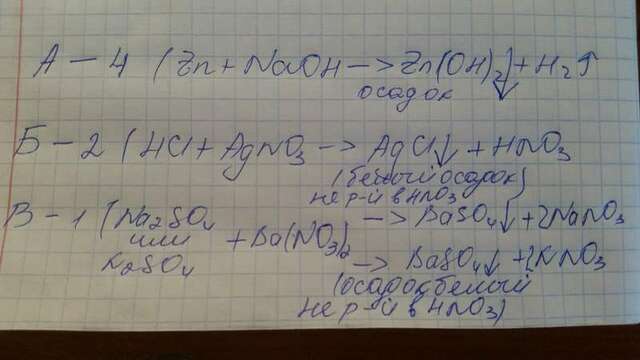 А – 4 (Zn + NaOH –> Zn(OH)2↓ + H2↑
осадок
Б – 2 (HCl + AgNO3 –> AgCl↓ + HNO3
(белый осадок)
не р-й в HNO3
В – 1 (Na2SO4 –> BaSO4↓ + 2NaNO3
или + Ba(NO3)2
K2SO4 –> BaSO4↓ + 2KNO3
(осадок белый
не р-й в HNO3)